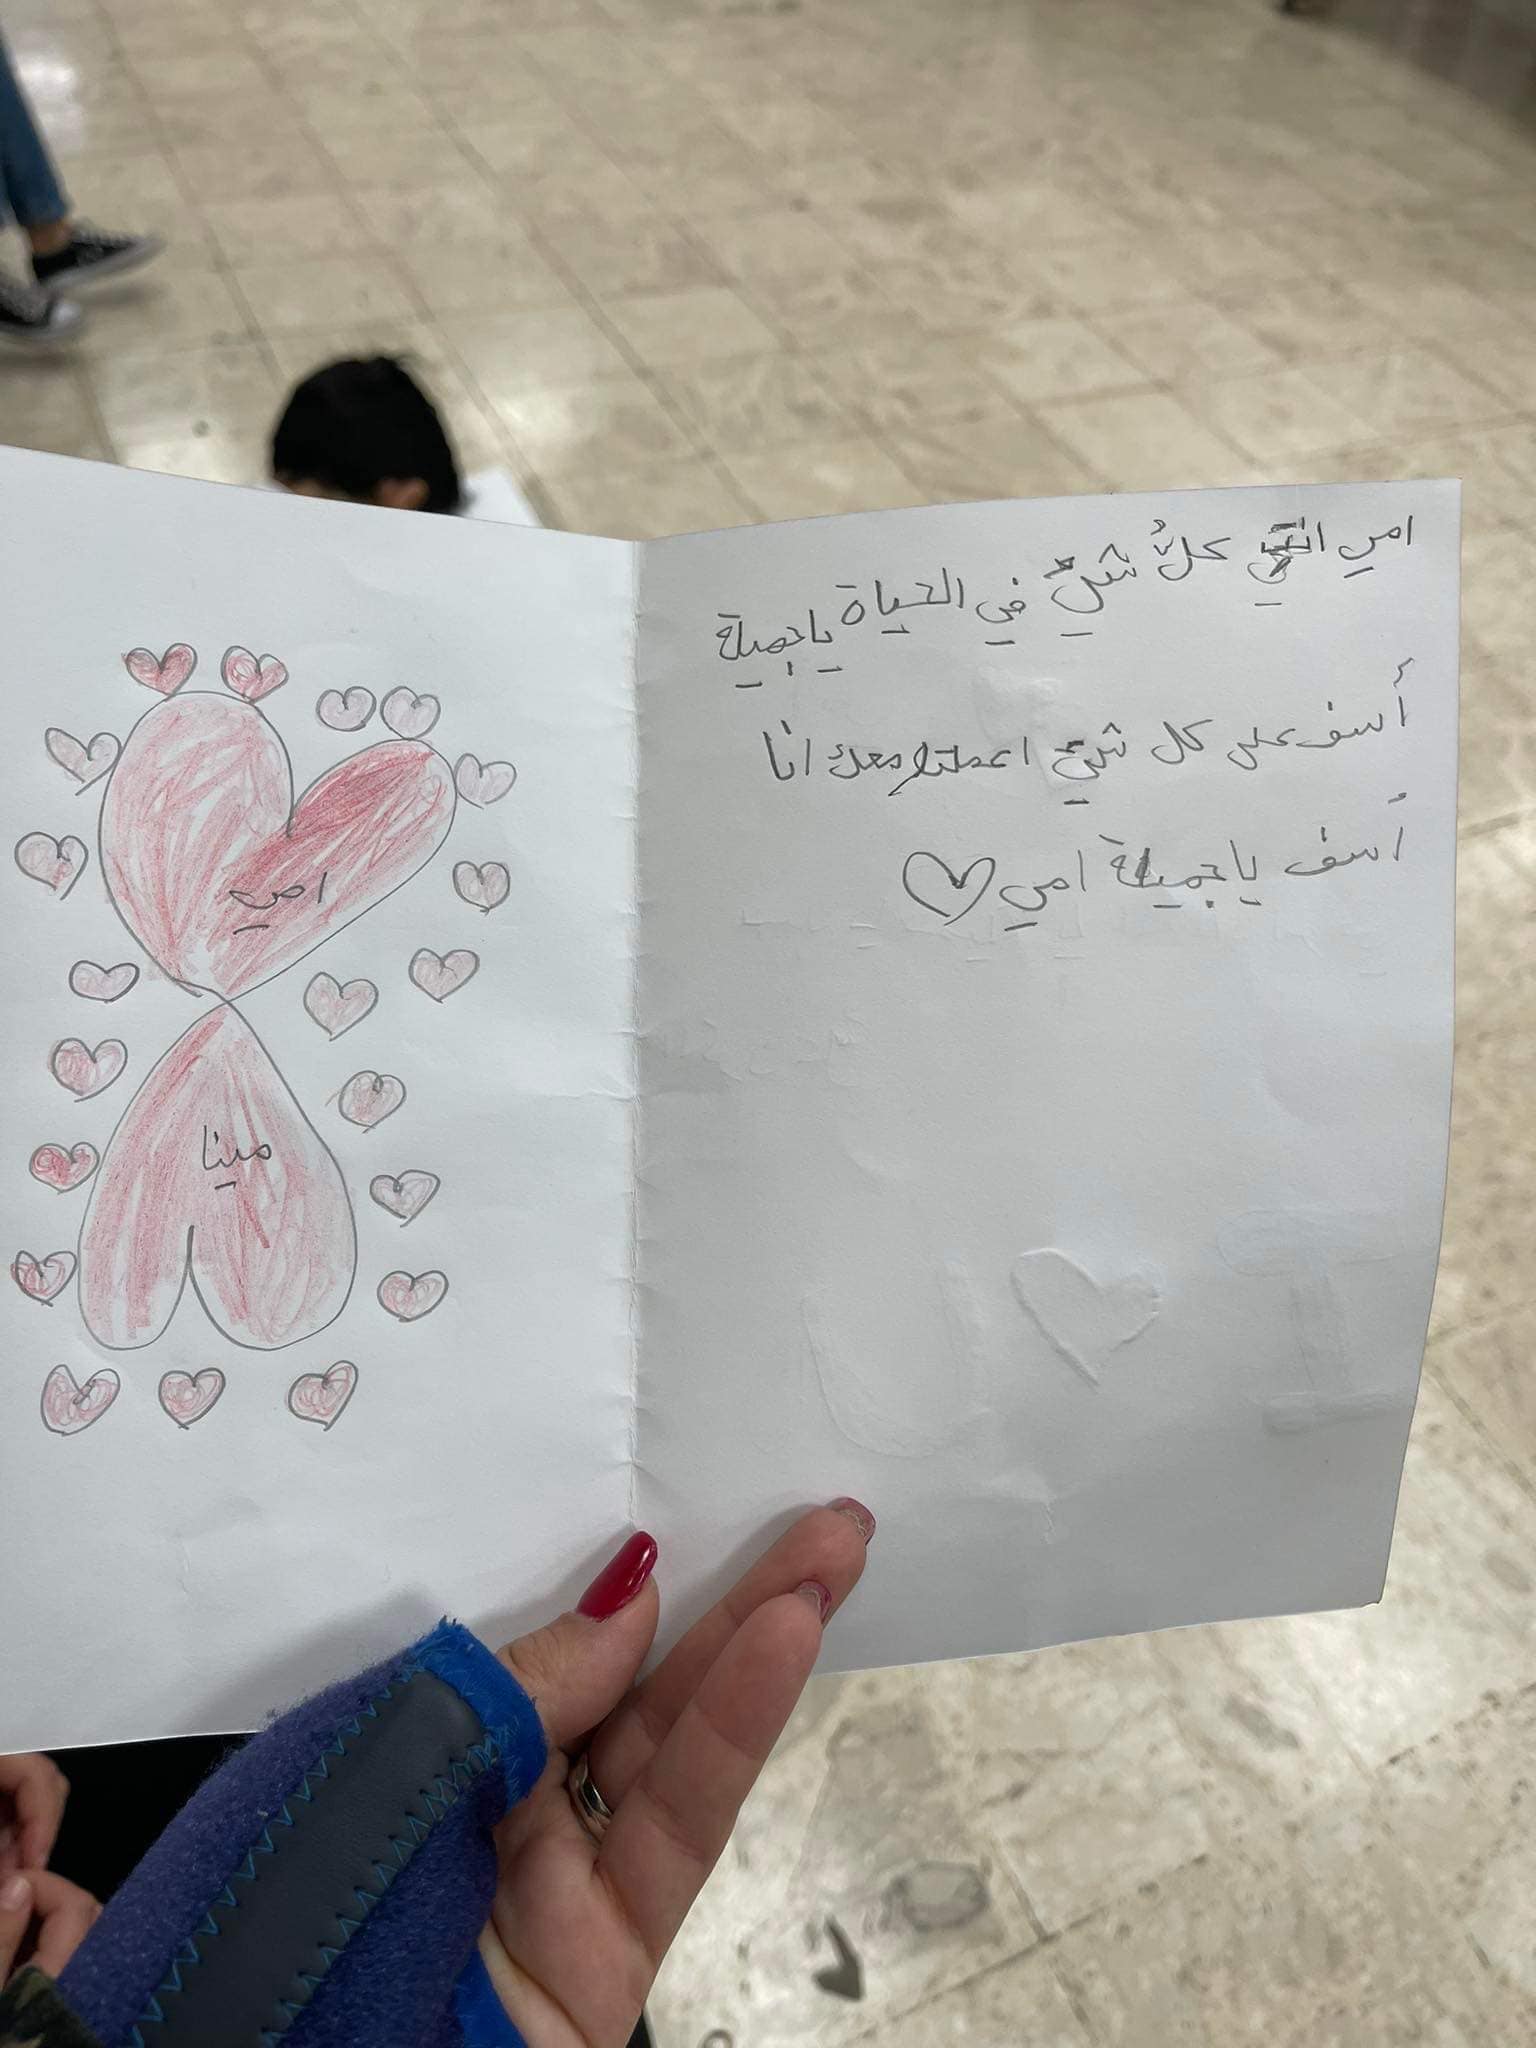 امي
مينا
امي انتي كلُّ شيٍّ في الحياة ياجميلة
أسف على كل شيٍّ اعملتو معك انا
أسف ياجميلة امي